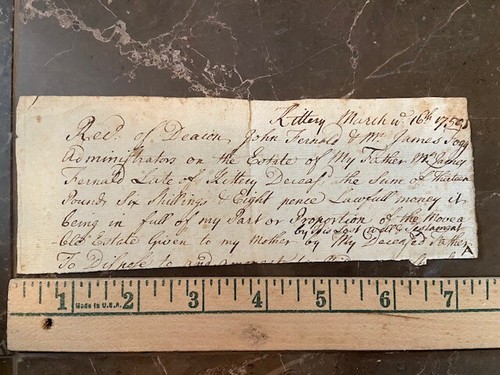 Kittery March ye 16th 1759
Recd of Deacon John Fernald & Mr James Fogg
Administrators on the Estate of My Father Mr James
Fernald Late of Kittery Deceasd the Sum of Thirteen
Pounds Six Shillings & Eight pence Lawfull money it
being in full of my Part or Proportion of the Movea
by his Last will & Testament
ble Estate Given to my Mother by My Deceased Father
To Dispose to and
1 2 3 4 5 6 7
Made in U.S.A.